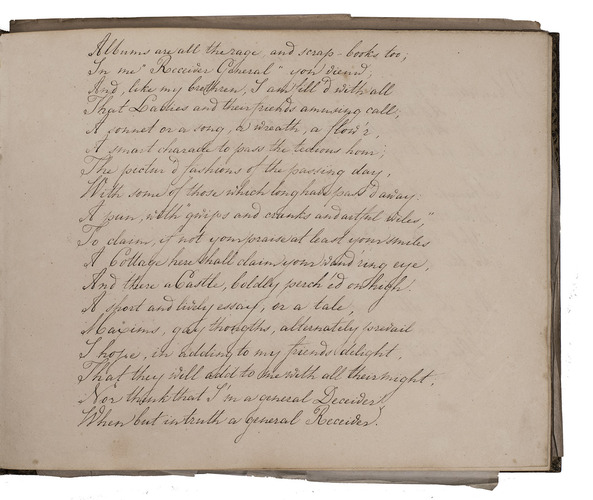 Albums are all the rage, and scrap-books too;
In me "Receider General" you view'd;
And, like my brethren, I am fill'd with all
That Ladies and their friends amusing call;
A sonnet or a song, a wreath, a flow'r,
A smart charade to pass the tedious hour;
The pictur'd fashions of the passing day,
With some of those which long have pass'd away;
A pun, with "quips and cranks and artful wiles,"
To claim, if not your praise at least your smiles
A Cottage here shall claim your wand'ring eye,
And there a Castle, boldly perch'd on high.
A sport and lively essay, or a tale,
Maxims, gay thougths, alternately prevail
I hope, in adding to my friends delight,
That they will add to me with all their might,
Nor think that I'm a general Deceider
When but in truth a general Receider.